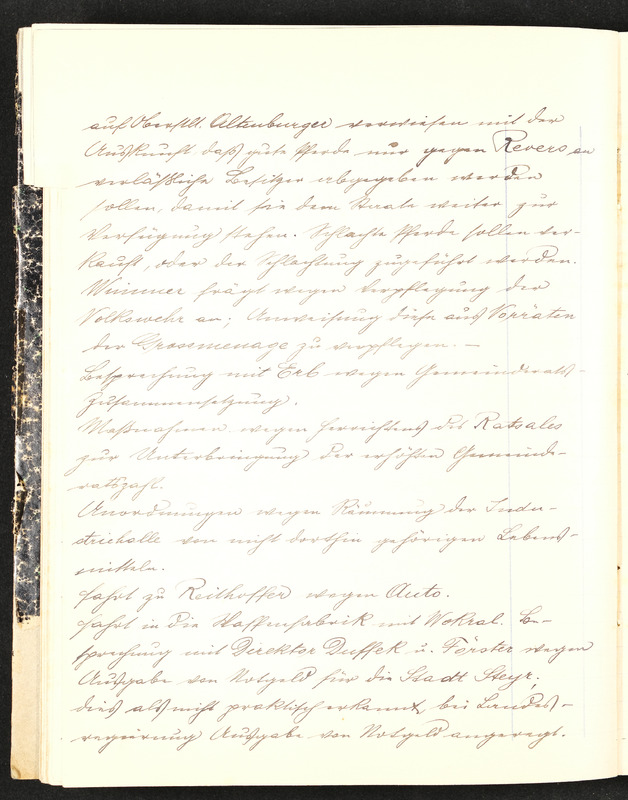 auf Oberstlt. Altenburger verwiesen mit der
Auskunft daß gute Pferde nur gegen Revers an
verläßliche Besitzer abgegeben werden
sollen, damit sie dem Staate weiter zur
Verfügung stehen. Schlechte Pferde sollen ver-
kauft, oder der Schlachtung zugeführt werden.
Wimmer frägt wegen Verpflegung der
Volkswehr an; Anweisung diese aus Vorräten
der Grossmenage zu verpflegen. —
Besprechung mit Erb wegen Gemeinderats-
zusammensetzung.
Maßnahmen wegen Herrichtens des Ratsales
zur Unterbringung der erhöhten Gemeinde-
ratszahl.
Anordnungen wegen Räumung der Indu-
striehalle von nicht dorthin gehörigen Lebens-
mitteln.
Fahrt zu Reithoffer wegen Auto.
Fahrt in die Waffenfabrik mit Wokral. Be-
sprechung mit Direktor Duffek u. Förster wegen
Ausgabe von Notgeld für die Stadt Steyr;
dies als nicht praktisch erkannt, bei Landes-
regierung Ausgabe von Notgeld angeregt.